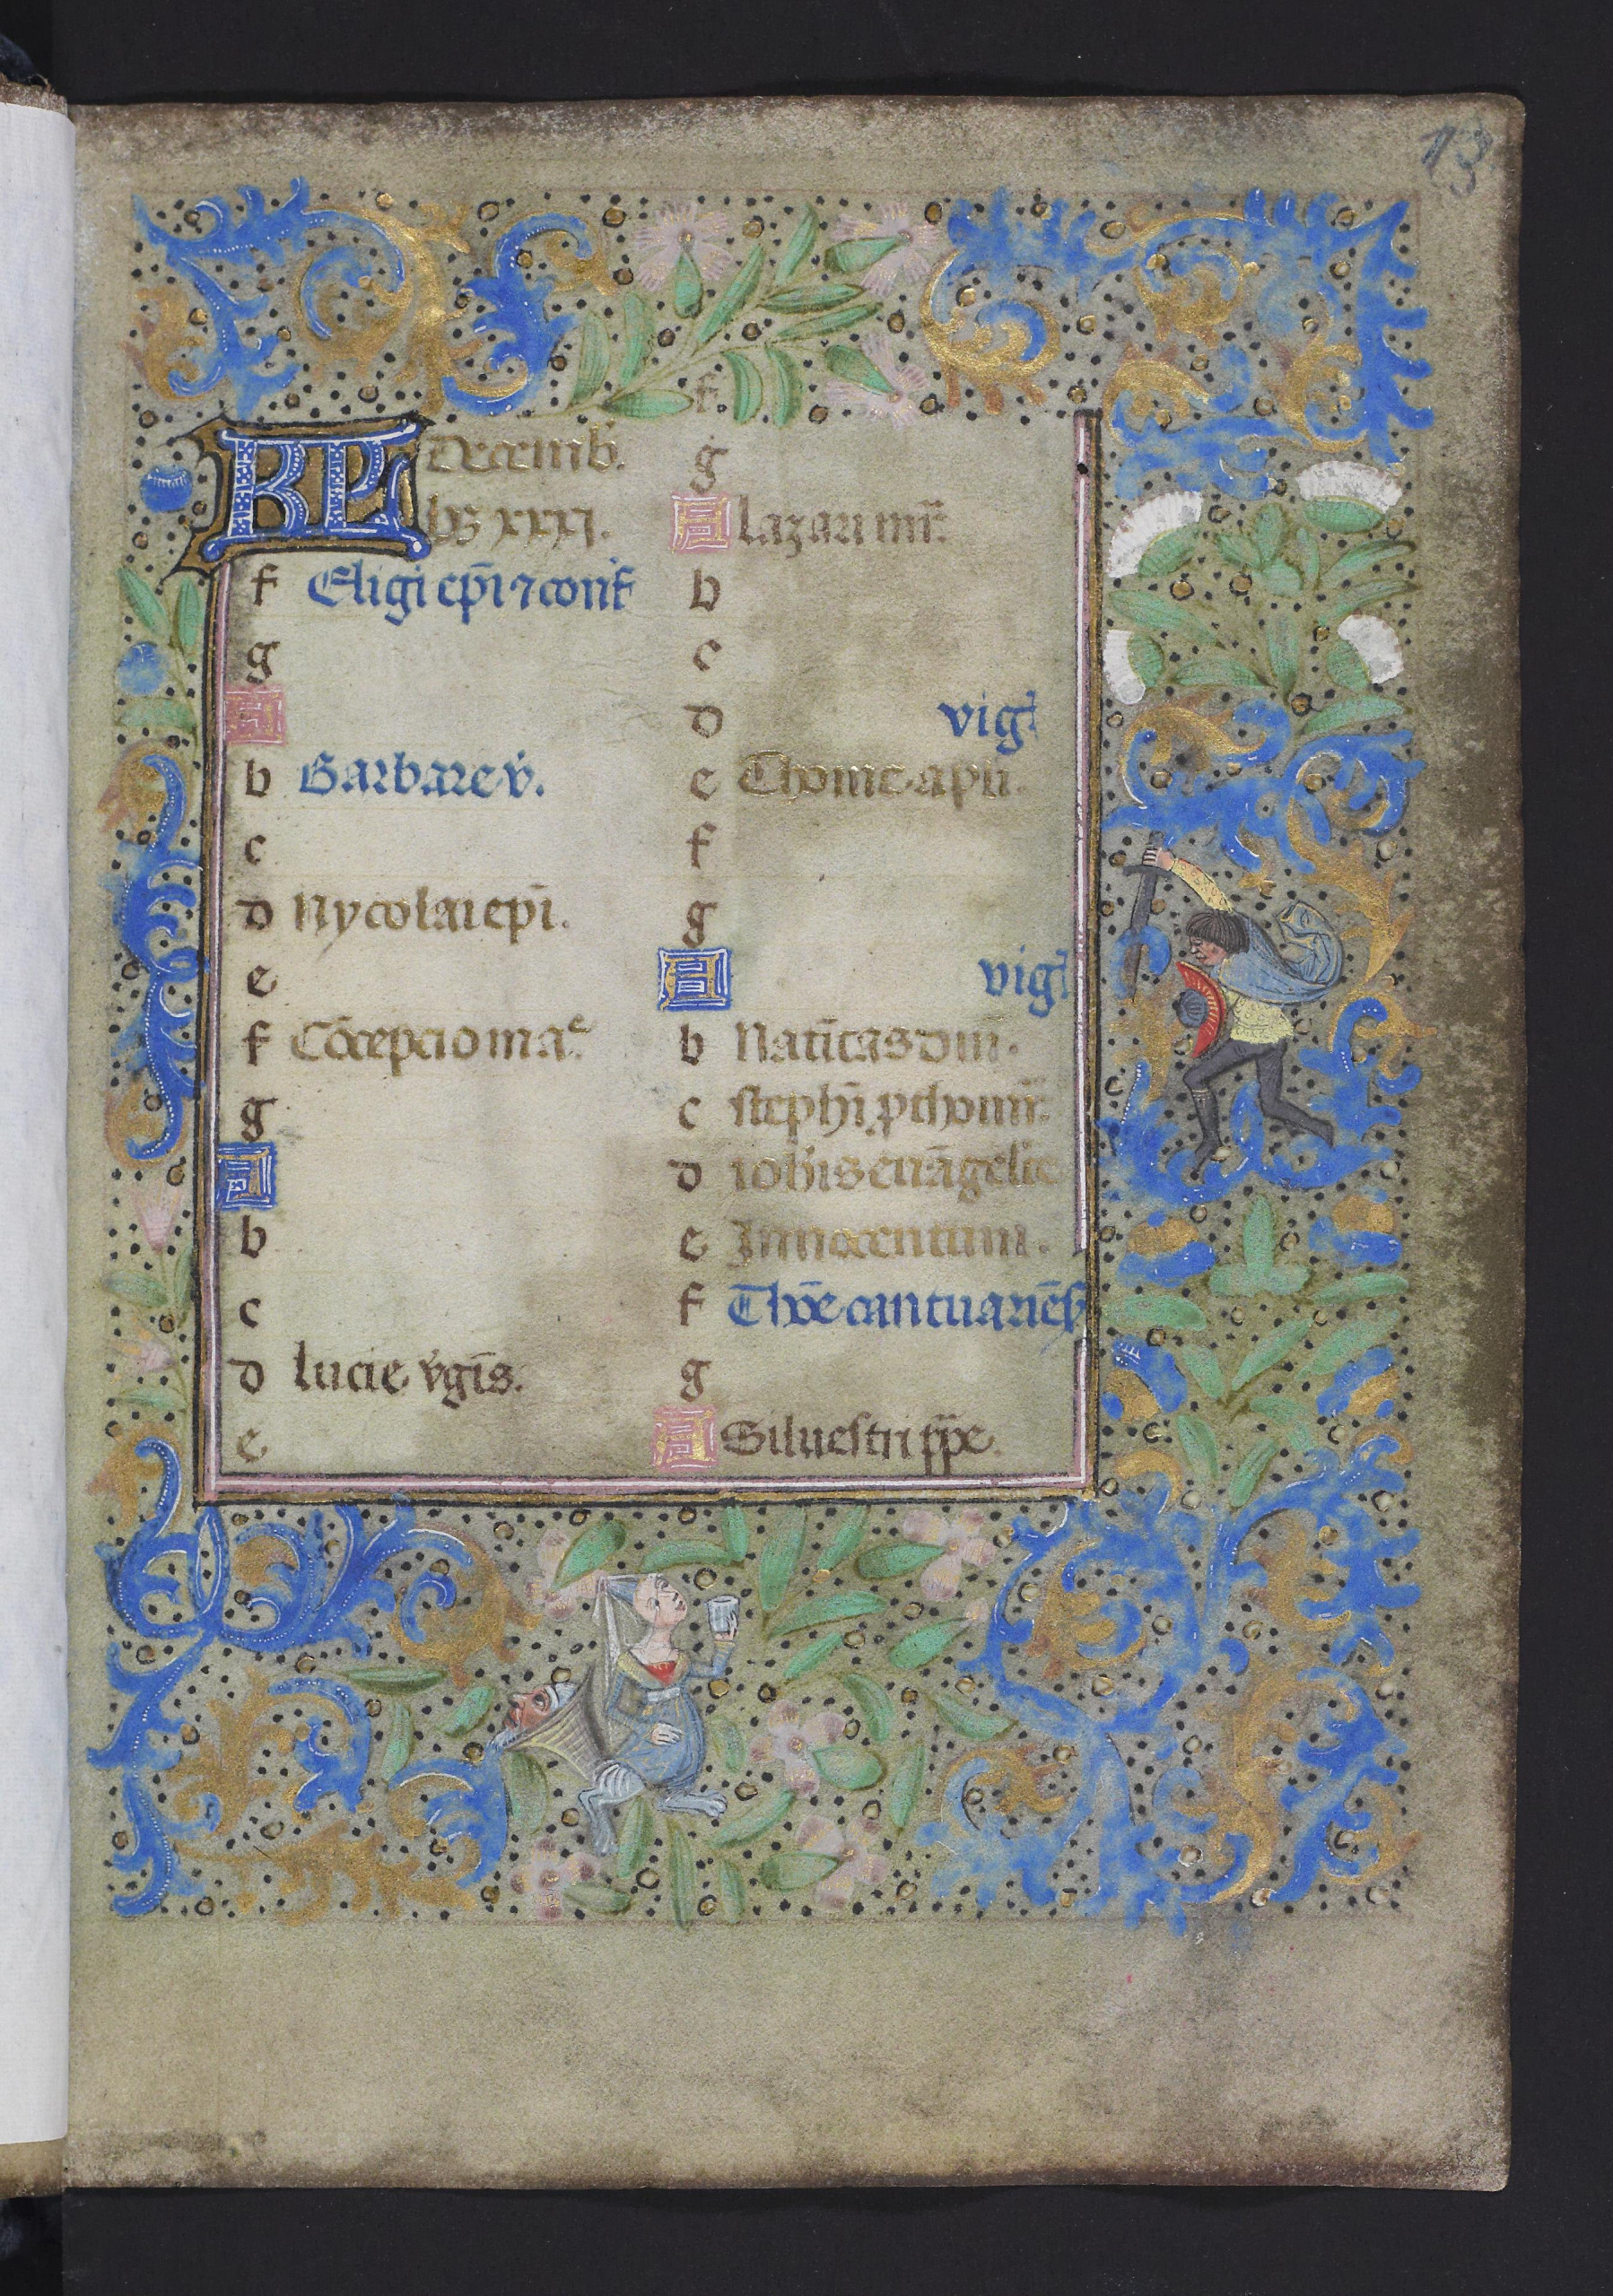 13
KL Decemb̾.
hȝ xxxj.
f Eligi ep̄i ⁊ conf̾
g
A
b Barbare v̾.
c
d Nycolai ep̄i.
e
f Cōcepcio maᵉ.
g
A
b
c
d lucie v̾gīs.
e
f
g
A lazari mr̄.
b
c
d vigꝉ
e Thome apli.
f
g
A vigꝉ
b Natītas dn̄i.
c steph̄i ꝓthomr̄.
d ioh̄is euāgelīe
e Innocentum.
f Thōe cantuariēs̾
g
A Siluestri pp̄e.